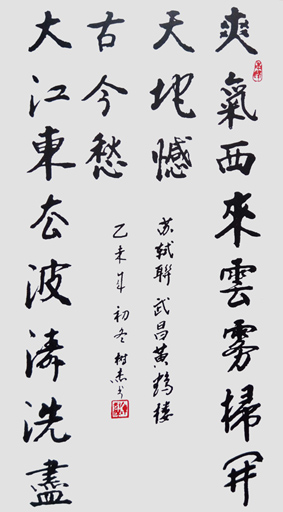 爽氣西來雲雾掃开
天地憾
大江東去波濤洗盡
古今愁
苏轼聯 武昌黄鹤楼
乙未年初冬树杰书